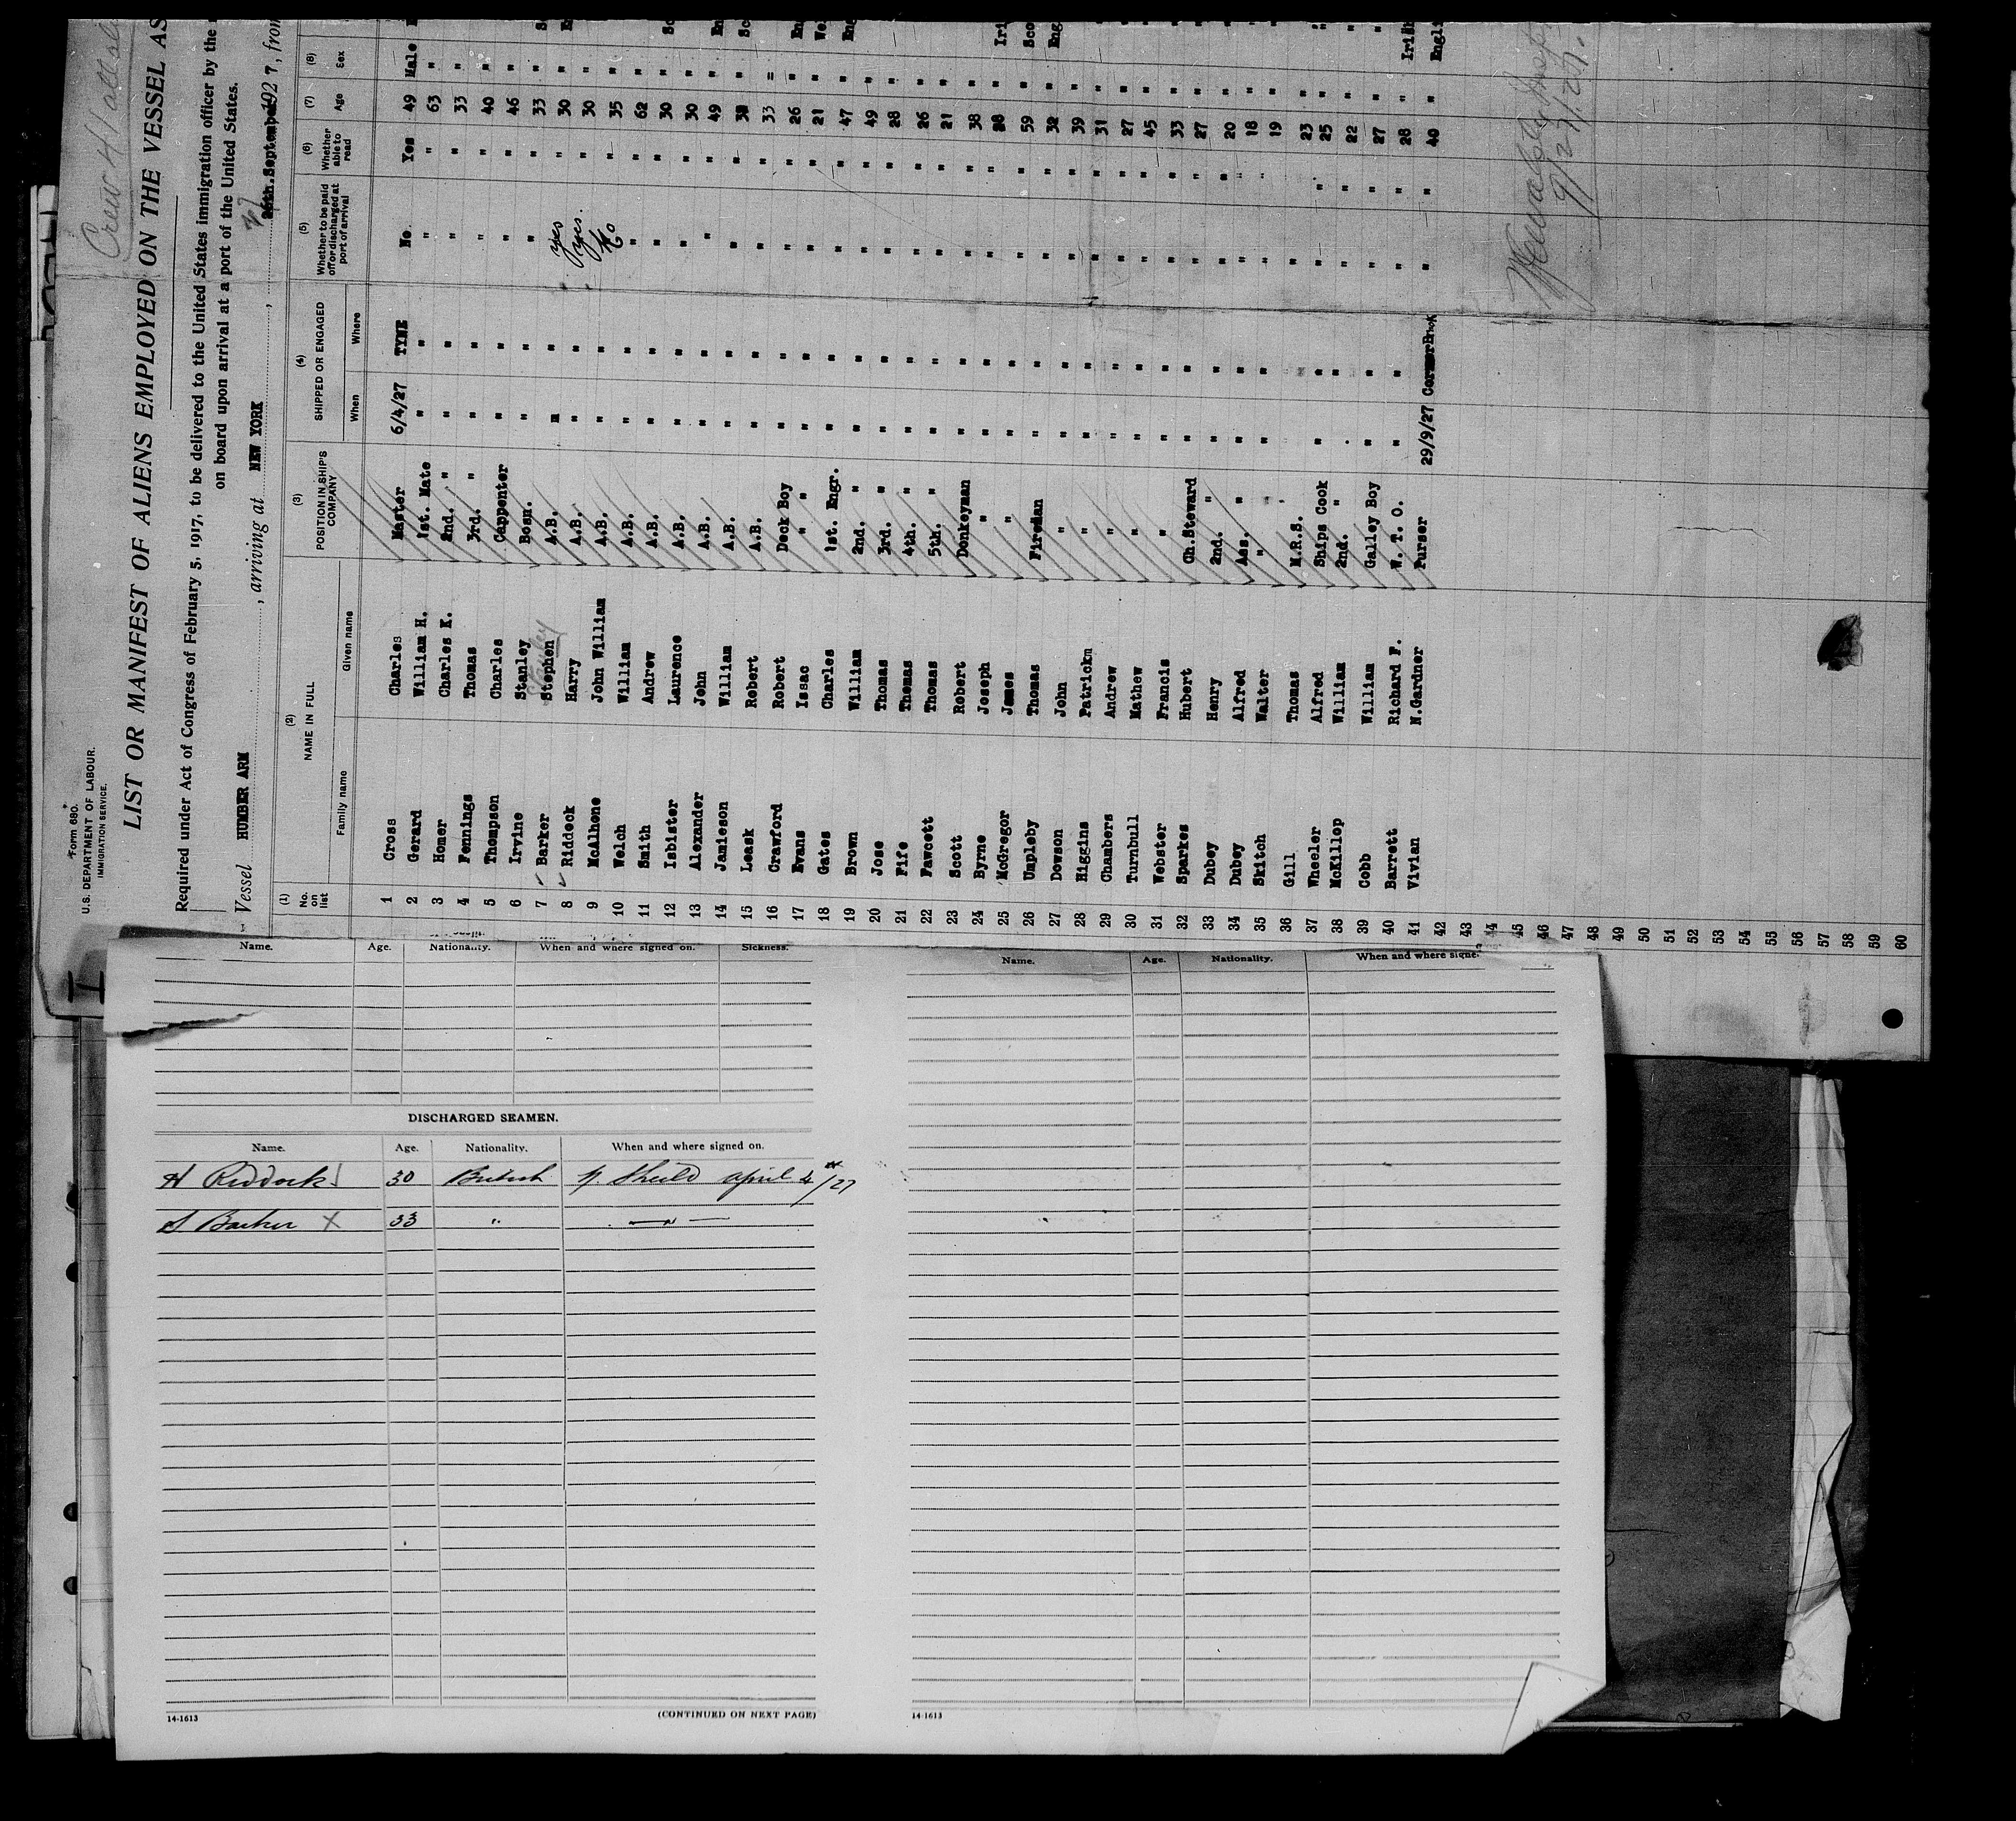 Form 680.
U.S. DEPARTMENT OF LABOUR.
IMMIGRATION SERVICE.
Crew 41
LIST OR MANIFEST OF ALIENS EMPLOYED ON THE VESSEL AS
Required under Act of Congress of February 5, 1917, to be delivered to the United States immigration officer by the
on board upon arrival at a port of the United States.
Vessel HUMBER ARM, arriving at NEW YORK, 27 26th. September 1927, from
(1) (2) (3) (4) (5) (6) (7) (8)
No. on list NAME IN FULL POSITION IN SHIP'S COMPANY SHIPPED OR ENGAGED Whether to be paid off or discharged at port of arrival Whether able to read Age Sex
Family name Given name When Where
1 Cross Charles Master 6/4/27 TYNE No. Yes 49 Male
2 Gerard William H. 1st. Mate " " " " 63 "
3 Homer Charles K. 2nd. " " " " " 33 "
4 Fennings Thomas 3rd. " " " " " 40 "
5 Thompson Charles Cappenter " " " " 46 "
6 Irvine Stanley Bosn. " " " " 33 "
7 ✓ Barker Stephen Stanley A.B. " " yes " 30 "
8 ✓ Riddeck Harry A.B. " " yes. " 30 "
9 McAlhone John William A.B. " " No " 35 "
10 Welch William A.B. " " " " 62 "
11 Smith Andrew A.B. " " " " 30 "
12 Isbister Laurence A.B. " " " " 30 "
13 Alexander John A.B. " " " " 49 "
14 Jamieson William A.B. " " " " "
15 Leask Robert A.B. " " " " 33 "
16 Crawford Robert Deck Boy " " " " 26 "
17 Evans Issac " " " " " " 21 "
18 Gates Charles 1st. Engr. " " " " 47 "
19 Brown William 2nd. " " " " " 49 "
20 Jose Thomas 3rd. " " " " " 28 "
21 Fife Themas 4th. " " " " " 26 "
22 Fawcett Thomas 5th. " " " " " 21 "
23 Scott Robert Donkeyman " " " " 38 "
24 Byrne Joseph " " " " " 28 "
25 McGregor James " " " " " 59 "
26 Umpleby Thomas Fireman " " " " 32 "
27 Dowson John " " " " " 39 "
28 Higgins Patrickm " " " " " 31 "
29 Chambers Andrew " " " " " 27 "
30 Turnbull Mathew " " " " " 45 "
31 Webster Francis " " " " " 33 "
32 Sparkes Hubert Ch.Steward " " " " 27 "
33 Dubey Henry 2nd. " " " " " 20 "
34 Dubey Alfred Ass. " " " " " 18 "
35 Skitch Walter " " " " " " 19 "
36 Gill Thomas M.R.S. " 23 "
37 Wheeler Alfred Ships Cook " " " " 25 "
38 McKillop William 2nd. " " " " " 22 "
39 Cobb William Galley Boy " " " " 27 "
40 Barrett Richard F. W. T. O. " " " " 28 "
41 Vivian N.Gardner Purser 29/9/27 CornerBrok " " 40 "
42
43
44
45
46
47
48
49
50
51
52
53
54
55
56
57
58
59
60
9/27/27.
Name. Age. Nationality. When and where signed on. Sickness.
DISCHARGED SEAMEN.
Name. Age. Nationality. When and where signed on.
H Riddock 30 British N. Sheild april 4th/27
S Barker X 33 " — " —
14-1613
(CONTINUED ON NEXT PAGE)
Name. Age. Nationality. When and where signe
14-1613